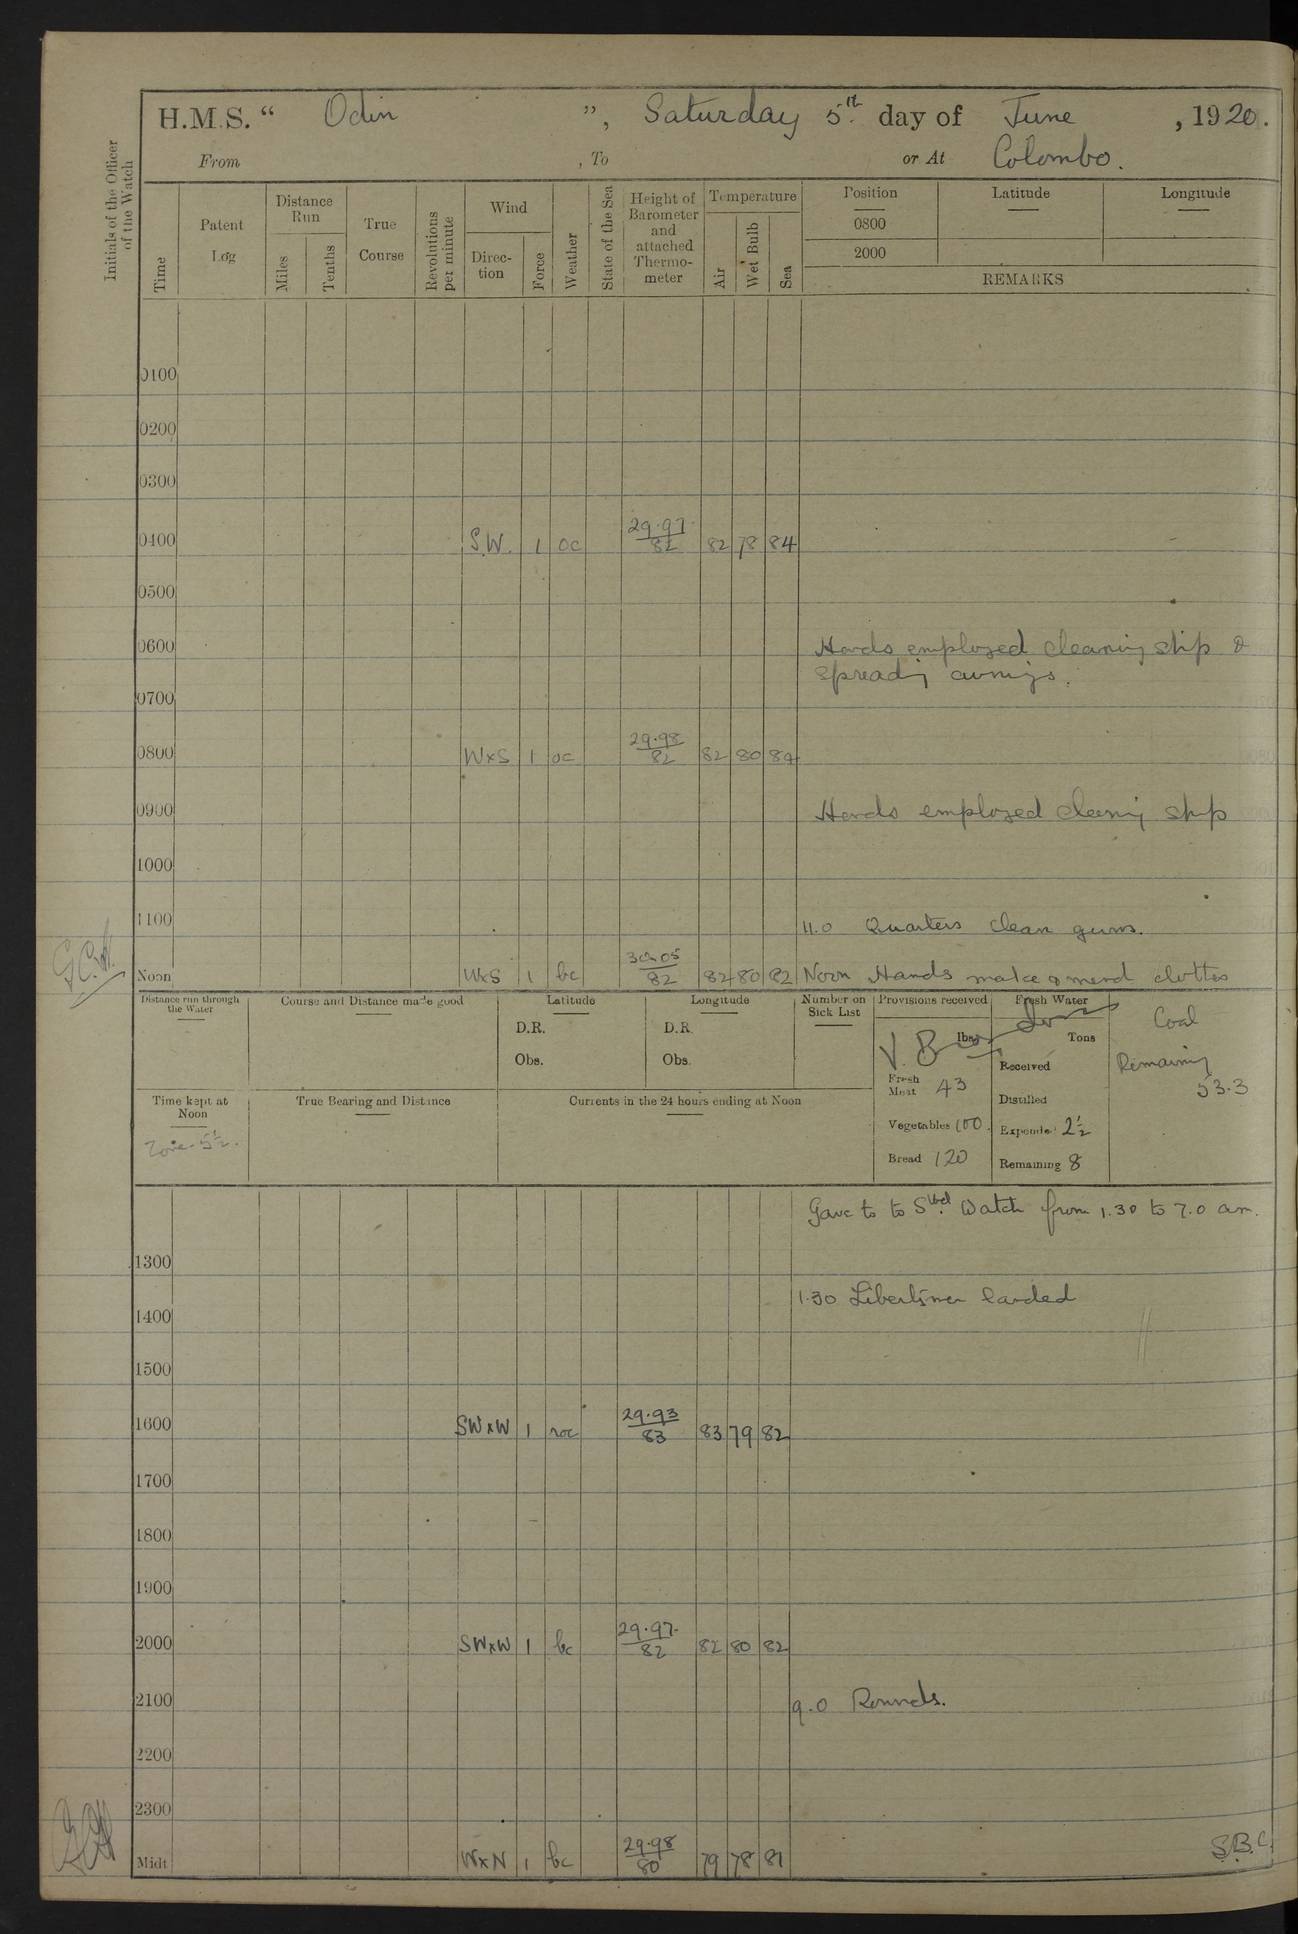 H.M.S. “ Odin ”, Saturday 5th day of June , 1920.
From , To or At Colombo.
Initials of the Officer of the Watch
Time
Patent Log
Distance Run
Miles
Tenths
True Course
Revolutions per minute
Wind
Direction
Force
Weather
State of the Sea
Height of Barometer and attached Thermometer
Temperature
Air
Wet Bulb
Sea
Position Latitude Longitude
0800
2000
REMARKS
0100
0200
0300
0400 S.W. 1 oc 29.97 82 82 78 84
0500
0600 Hands employed cleaning ship &
spreading awnings.
0700
0800 WxS 1 oc 29.98 82 82 80 84
0900 Hands employed cleaning ship
1000
1100 11.0 Quarters clean guns.
Noon WxS 1 bc 30.05 82 82 80 82 Noon Hands make & mend clothes
Distance run through the Water
Course and Distance made good
Latitude
D.R.
Obs.
Longitude
D.R.
Obs.
Number on Sick List
Provisions received
lbs.
Fresh Meat 43
Vegetables 100.
Bread 120
Fresh Water
Tons
Received
Distilled
Expended 2½
Remaining 8
Coal
Remaining
53.3
Time kept at Noon
Zone - 5½.
True Bearing and Distance
Currents in the 24 hours ending at Noon
Gave to to Stbd Watch from 1.30 to 7.0 am.
1300
1.30 Libertymen landed
1400
1500
1600 SWxW 1 roc 29.93 83 83 79 82
1700
1800
1900
2000 SWxW 1 bc 29.97 82 82 80 82
2100 9.0 Rounds.
2200
2300
Midt. WxN 1 bc 29.98 80 79 78 81
S.B.C.